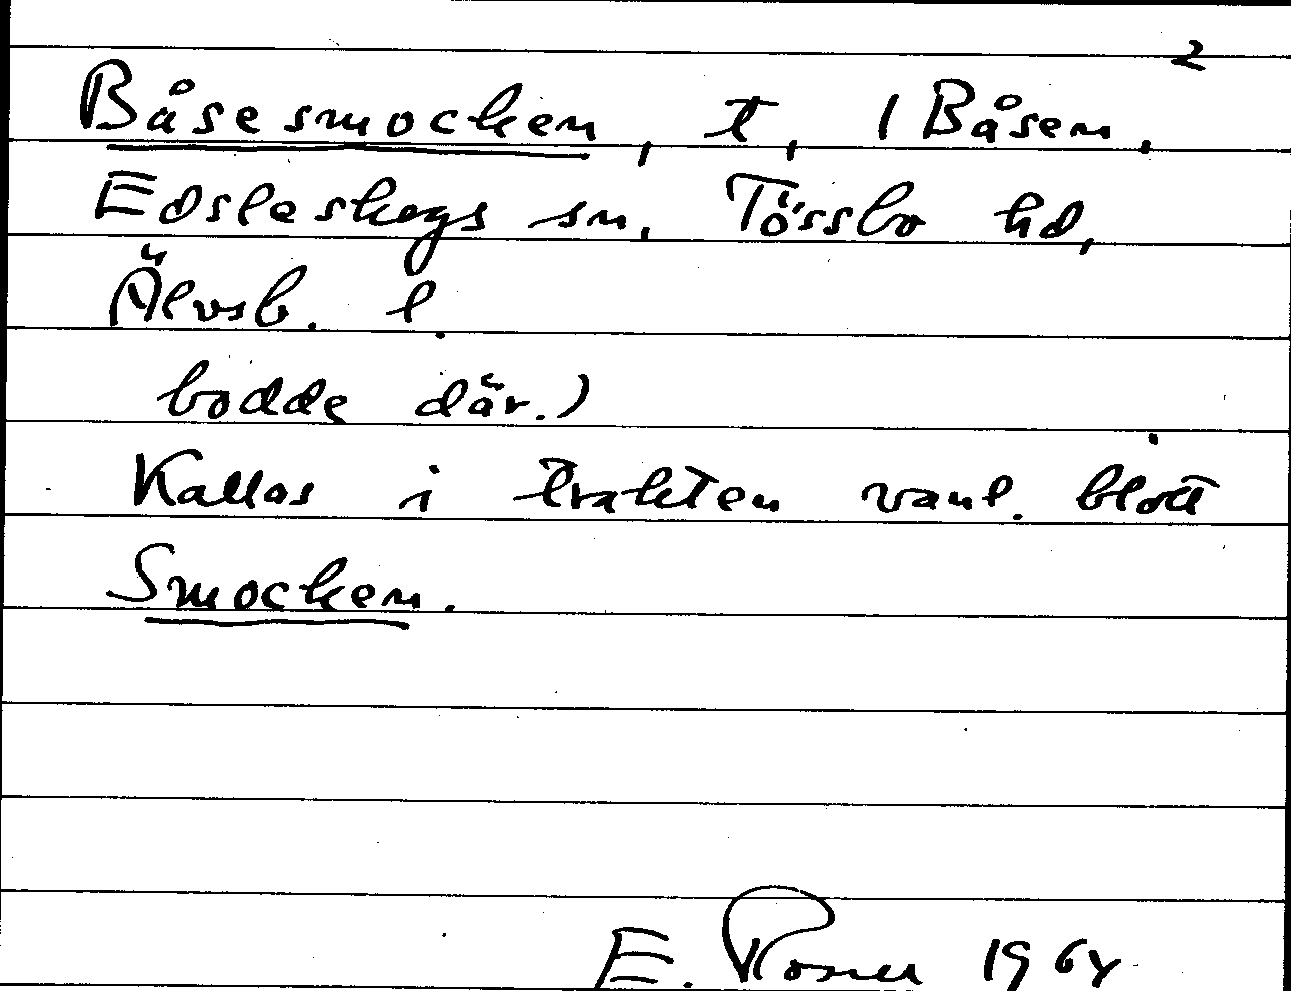 2
Båsesmocken, t, 1 Båsen,
Edsleskogs sn, Tössbo hd,
Älvsb. l.
bodde där.)
Kallas i trakten vanl. blott
Smocken.
E. Rosner 1964